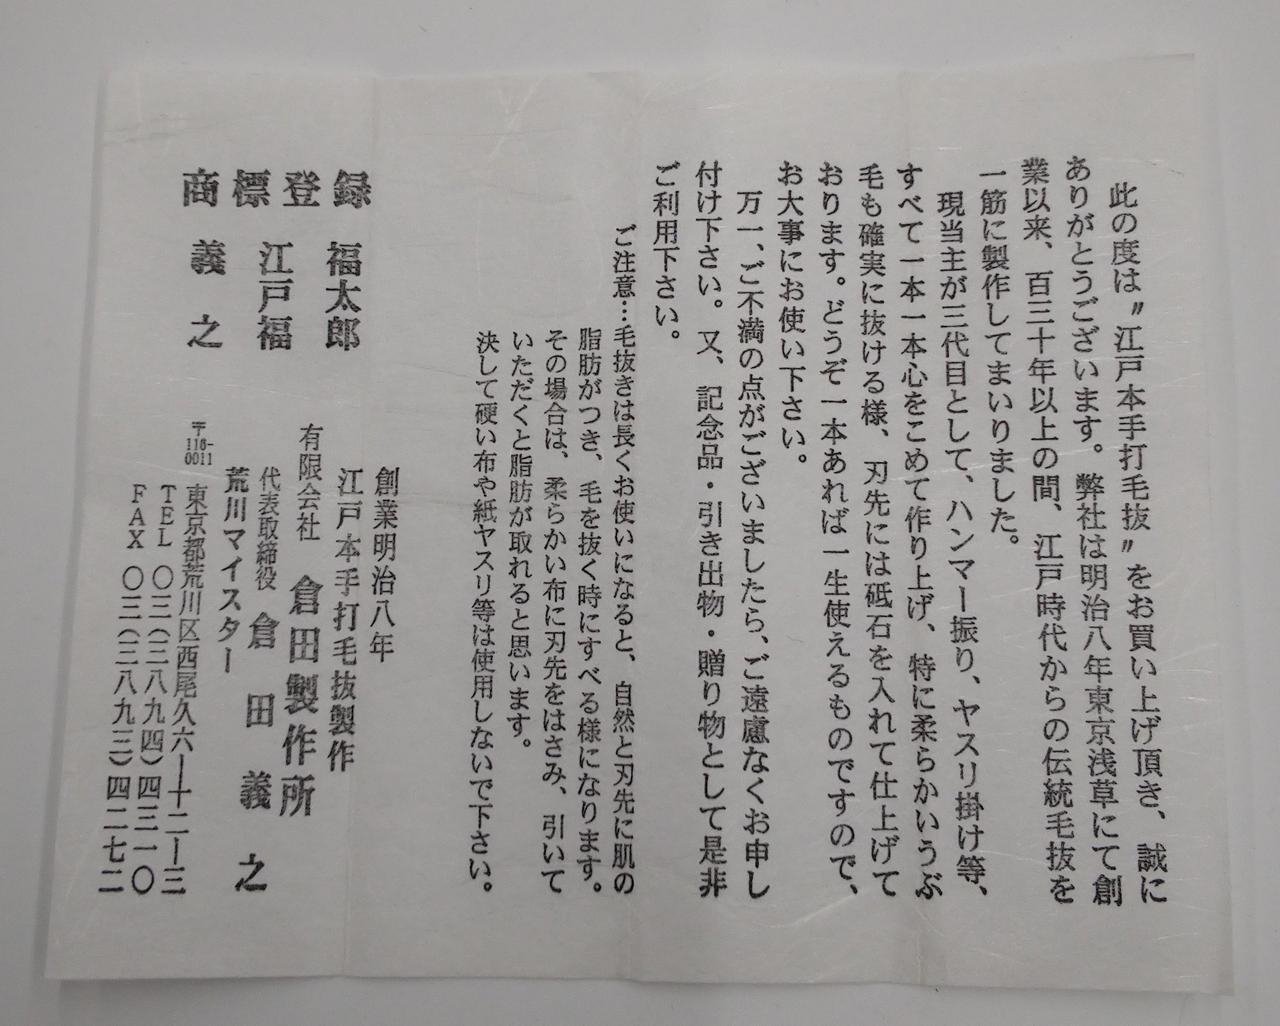 此の度は〝江戸本手打毛抜〟をお買い上げ頂き、誠に
ありがとうございます。弊社は明治八年東京浅草にて創
業以来、百三十年以上の間、江戸時代からの伝統毛抜を
一筋に製作してまいりました。
現当主が三代目として、ハンマー振り、ヤスリ掛け等、
すべて一本一本心をこめて作り上げ、特に柔らかいうぶ
毛も確実に抜ける様、刃先には砥石を入れて仕上げて
おります。どうぞ一本あれば一生使えるものですので、
お大事にお使い下さい。
万一、ご不満の点がございましたら、ご遠慮なくお申し
付け下さい。又、記念品・引き出物・贈り物として是非
ご利用下さい。
ご注意…毛抜きは長くお使いになると、自然と刃先に肌の
脂肪がつき、毛を抜く時にすべる様になります。
その場合は、柔らかい布に刃先をはさみ、引いて
いただくと脂肪が取れると思います。
決して硬い布や紙ヤスリ等は使用しないで下さい。
商標登録
福太郎
江戸福
義之
創業明治八年
江戸本手打毛抜製作
有限会社 倉田製作所
代表取締役 倉田義之
荒川マイスター
〒116-0011 東京都荒川区西尾久六ー十二ー三
TEL 〇三(三八九四)四三一〇
FAX 〇三(三八九三)四二七二